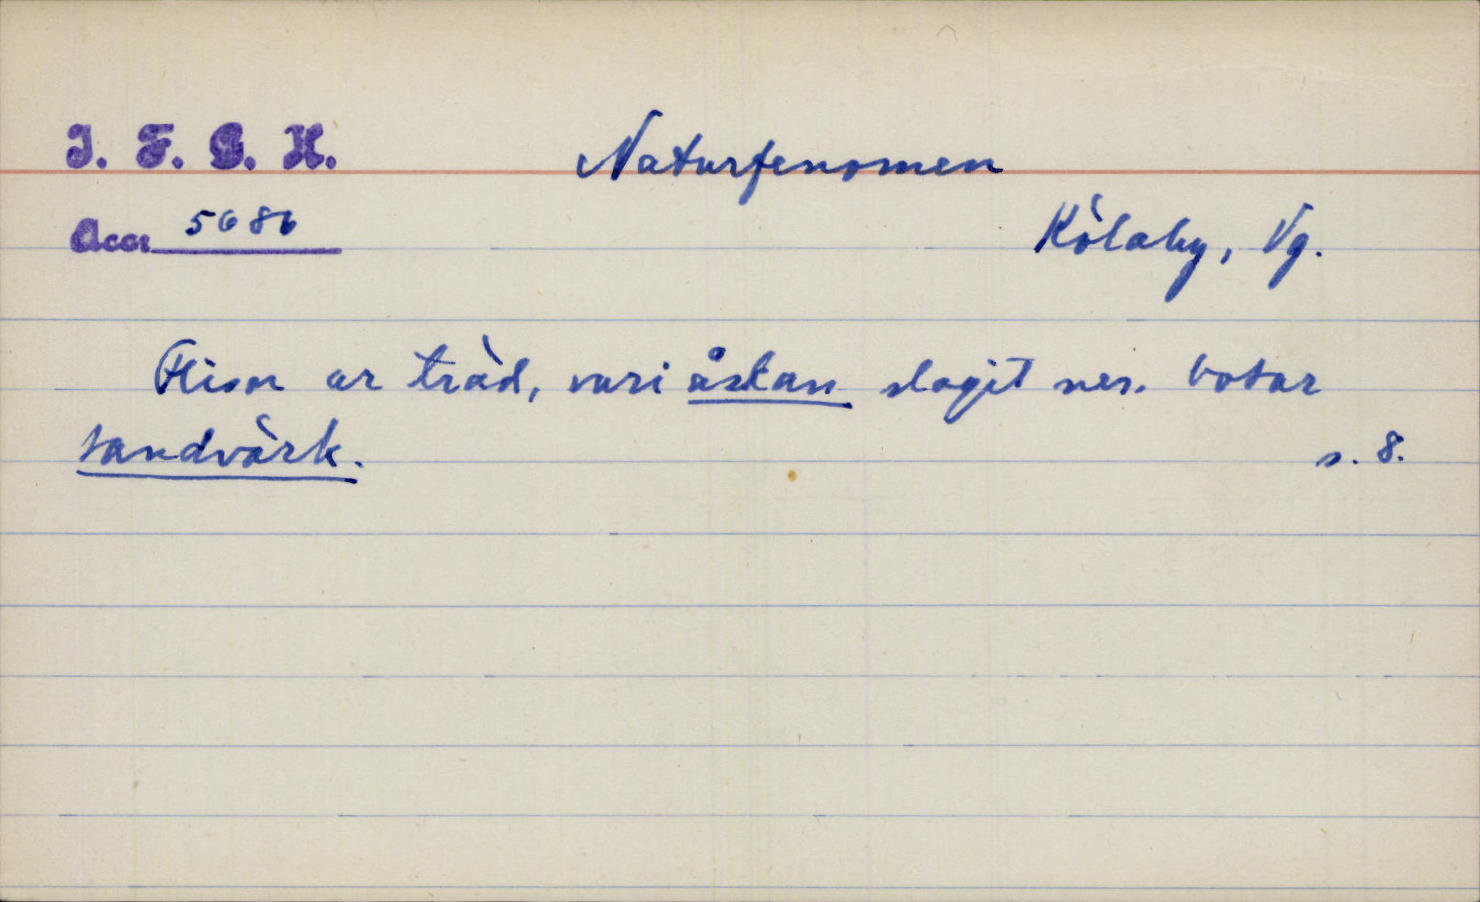 I. F. G. H. Naturfenomen
Acc. 5686 Kölaby, Vg.
Flisor ur träd, vari åskan slagit ner. botar
tandvärk. s. 8.